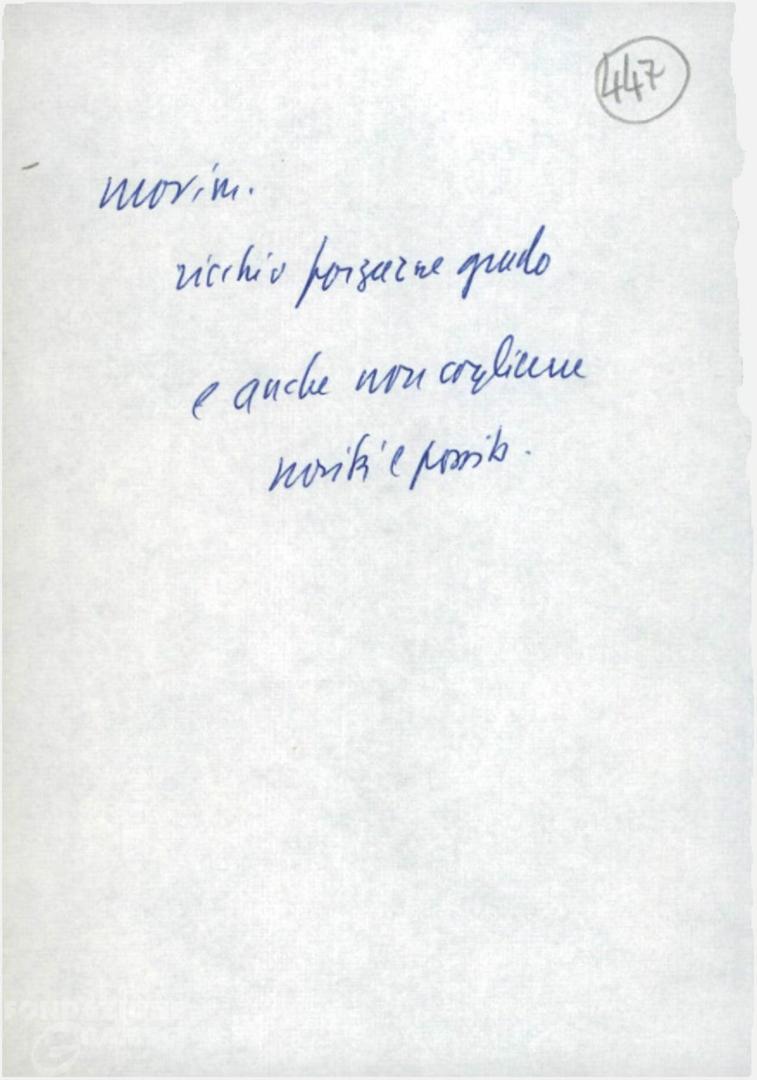 447
movim.
rischio forzarne grado
e anche non coglierne
novità e possib.
FONDAZIONE